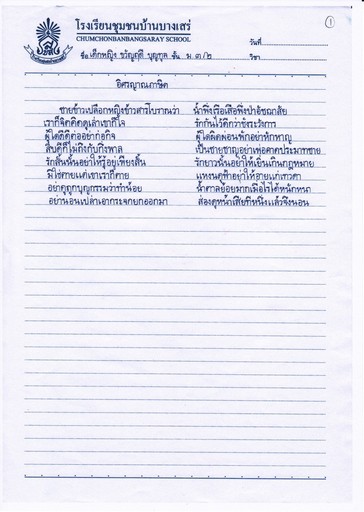 ①
โรงเรียนชุมชนบ้านบางเสร่
CHUMCHONBANBANGSARAY SCHOOL
วันที่
ชื่อ เด็กหญิง ขวัญฤดี บุญขุล ชั้น ม.๓/๒ วิชา
อิศรญาณภาษิต
ชายข้าวเปลือกหญิงข้าวสารโบราณว่า น้ำพึ่งเรือเสือพึ่งป่าอัชฌาสัย
เราก็จิตคิดดูเล่าเขาก็ใจ รักกันไว้ดีกว่าชังระวังการ
ผู้ใดดีดีต่ออย่าก่อกิจ ผู้ใดผิดผ่อนพักอย่าหักหาญ
สิบดีก็ไม่ถึงกับกึ่งพาล เป็นชายชาญอย่าเพ่อคาดประมาทชาย
รักสั้นนั้นอย่าให้รู้อยู่เพียงสั้น รักยาวนั้นอย่าให้เยิ่นเกินกฎหมาย
มิใช่ตายแต่เขาเราก็ตาย แหงนดูฟ้าอย่าให้อายแก่เทวดา
อย่าดูถูกบุญกรรมว่าทำน้อย น้ำตาลย้อยมากเมื่อไรได้หนักหนา
อย่านอนเปล่าเอากระจกยกออกมา ส่องดูหน้าเสียทีหนึ่งแล้วจึงนอน